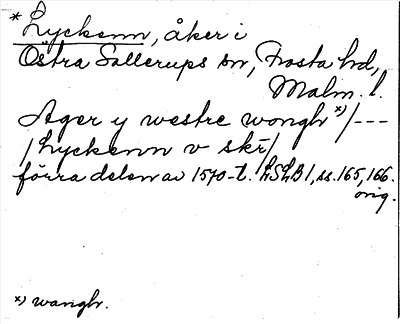 * Lyckenn, åker i
Östra Sallerups sn, Frosta hd,
Malm. l.
Ager y westre wonghr x)/---
/Lyckenn v skr/
förra delen av 1570-t. LSLB 1, ss. 165, 166.
orig.
x) wanghr.